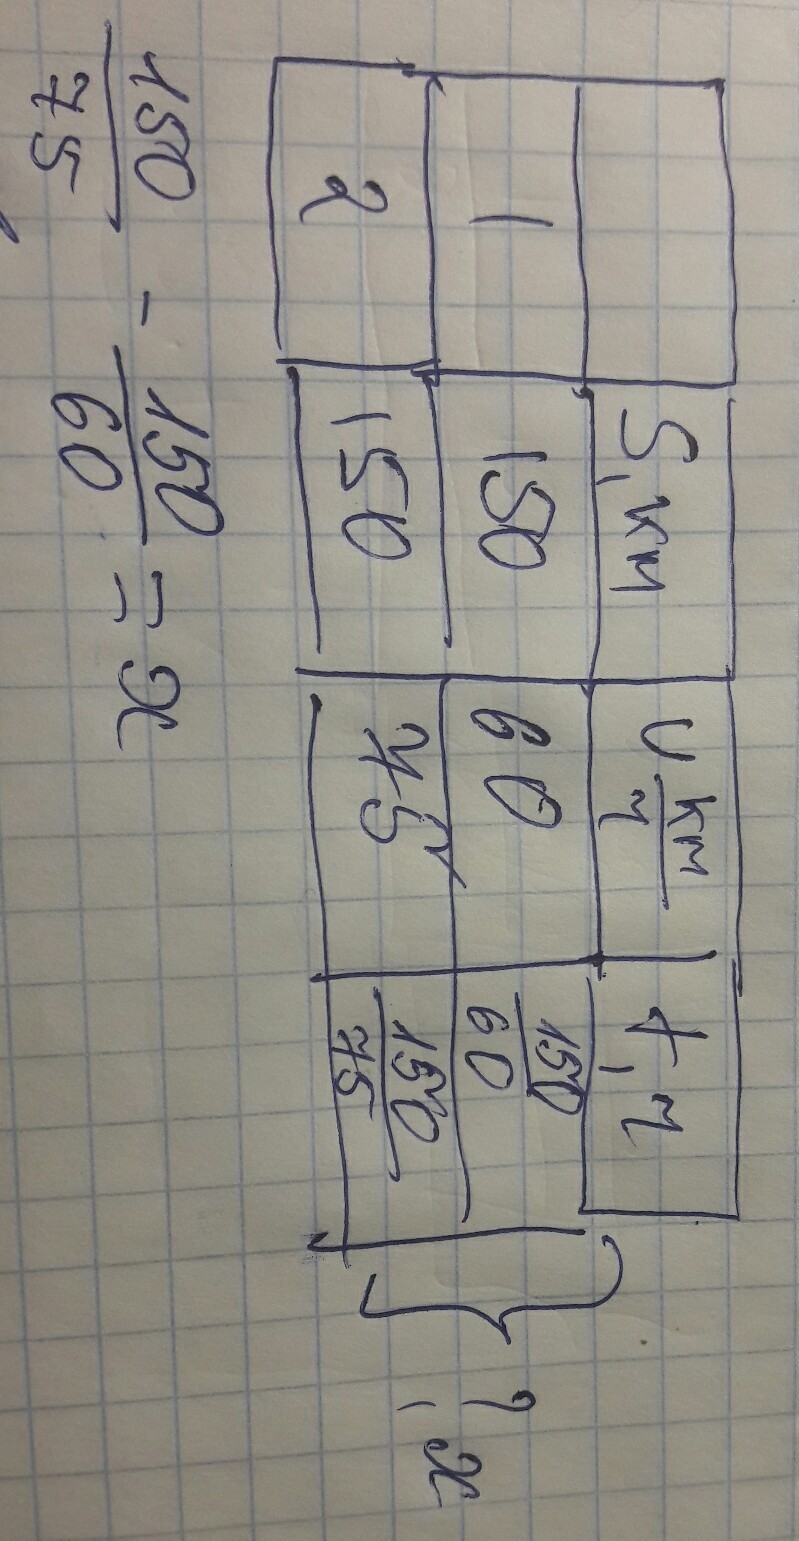 S, км υ км/ч t, ч
1 150 60 150/60
2 150 75 150/75
?, x
150/75 - 150/60 = x